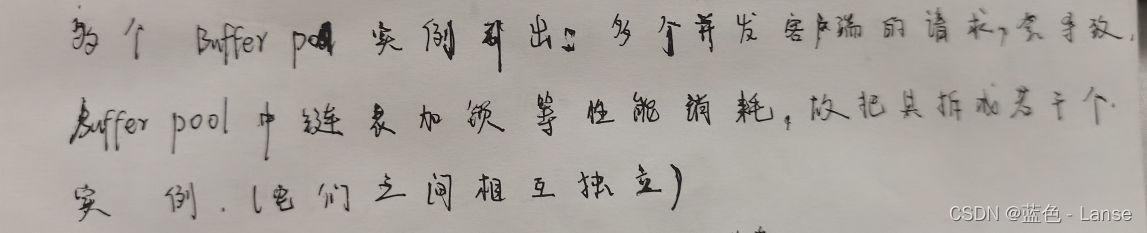 多个 Buffer pool 实例引出：多个并发客户端的请求，会导致，
Buffer pool 中链表加锁等性能消耗，故把其拆成若干个
实例.（它们之间相互独立）
CSDN @蓝色 - Lanse